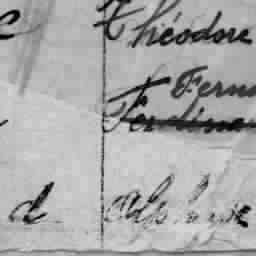 Théodore
Fern
Ferdinan
d Alphonse